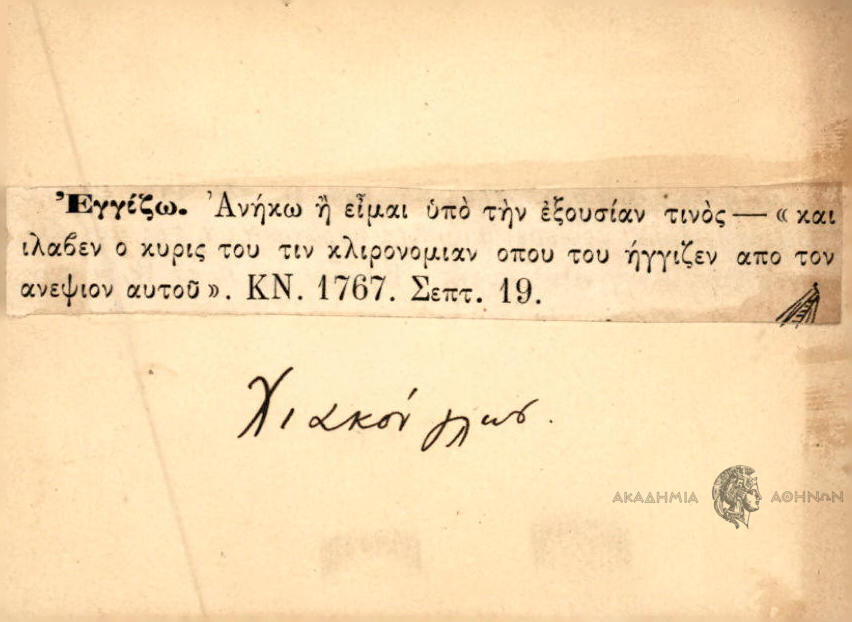 Ἐγγέζω. Ἀνήκω ἢ εἶμαι ὑπὸ τὴν ἐξουσίαν τινὸς — « και
ιλαβεν ο κυρις του τιν κλιρονομιαν οπου του ήγγιζεν απο τον
ανεψιον αυτοῦ». ΚΝ. 1767. Σεπτ. 19.
Χιακόν γλωσ.
ΑΚΑΔΗΜΙΑ ΑΘΗΝΩΝ